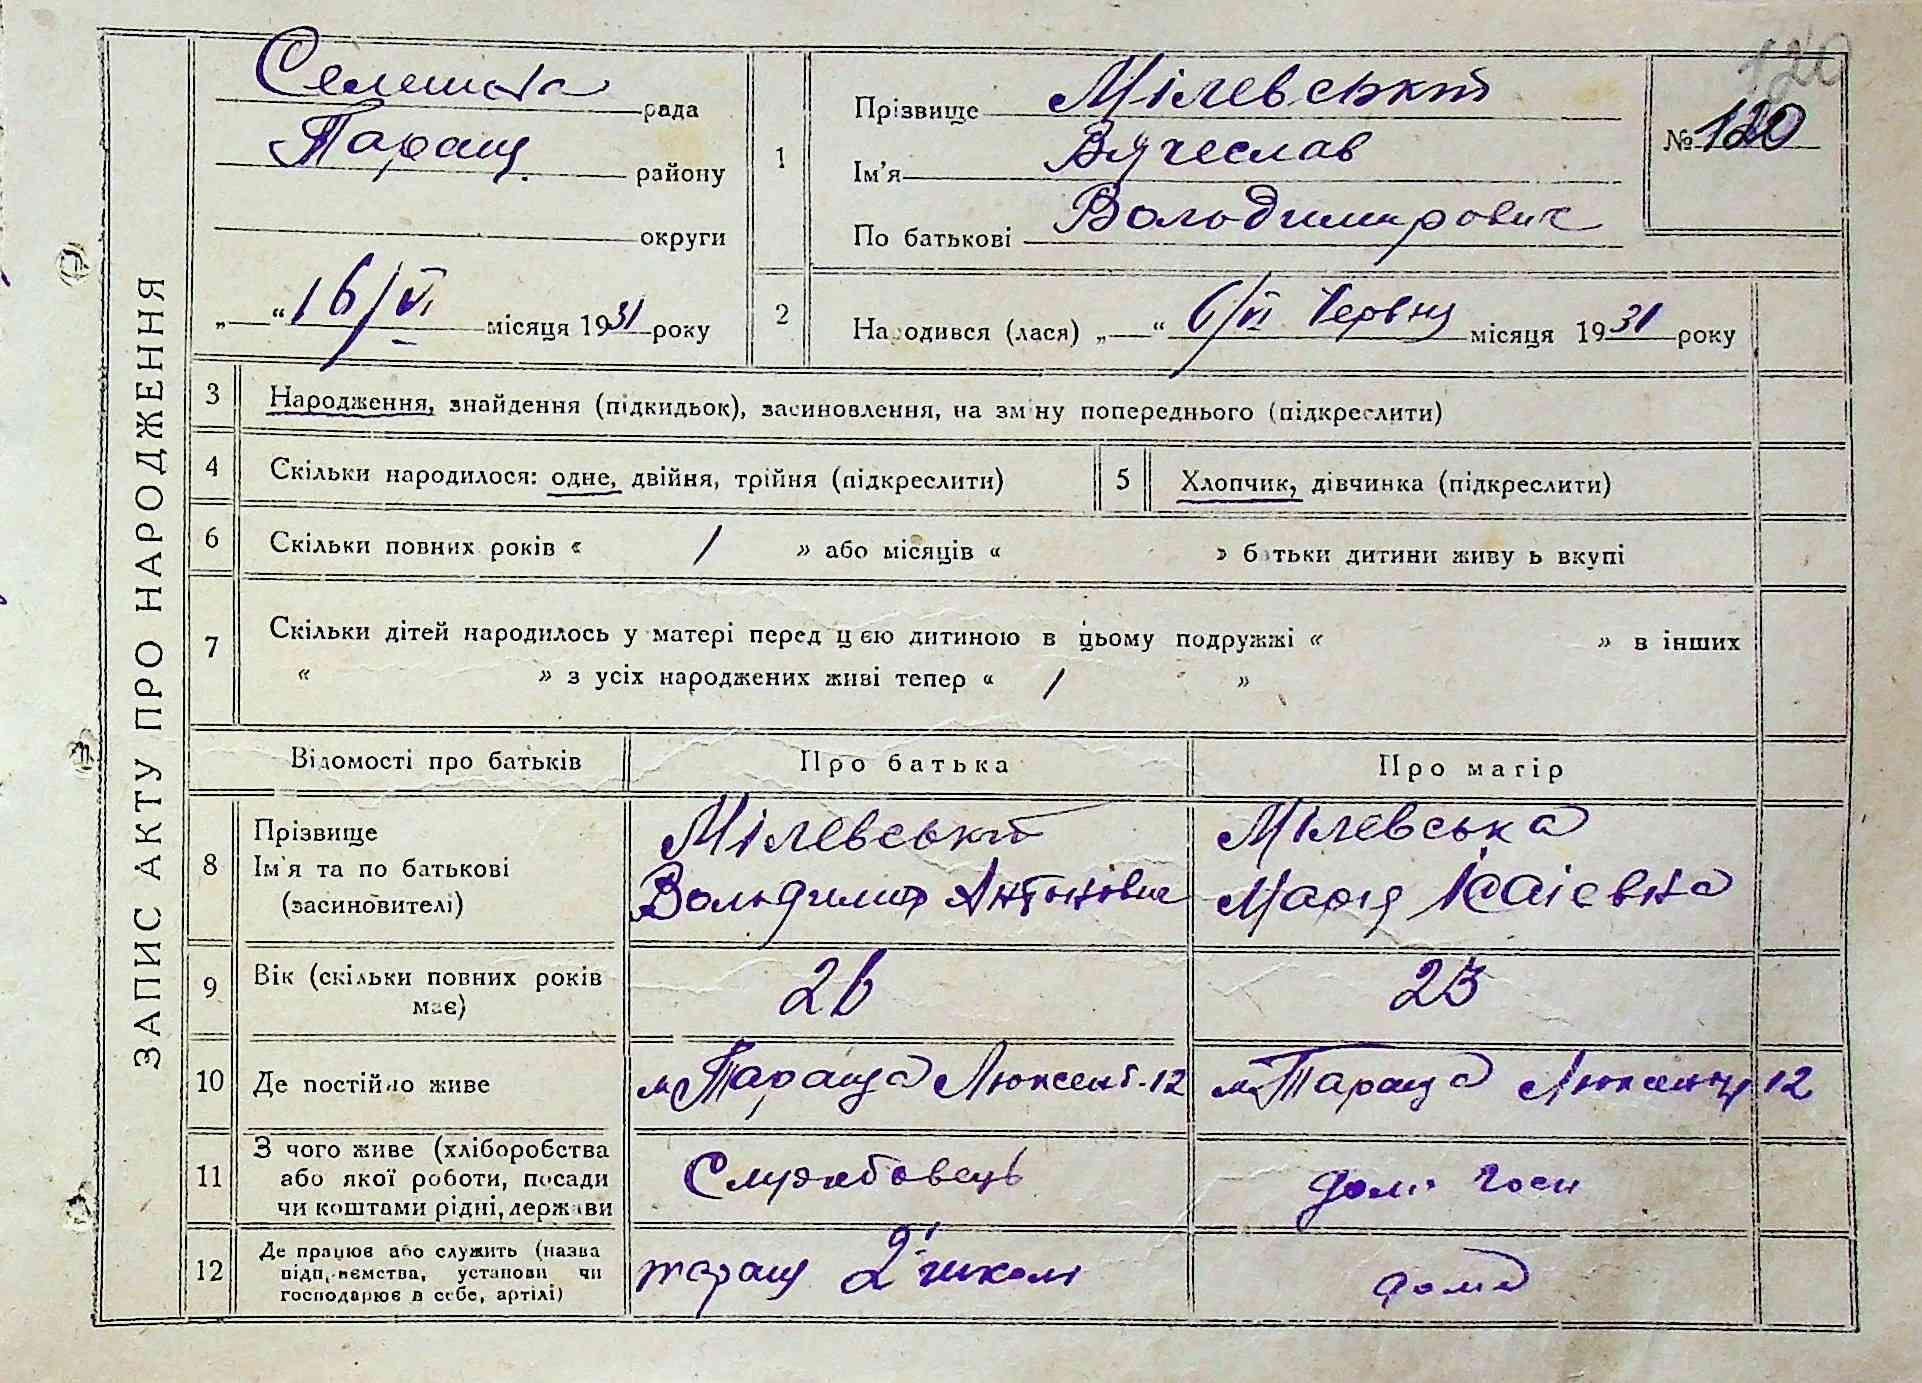 120
рада
Таращ.
району
округи
„ — “ 16/VI місяця 1931 року
1
Прізвище Мілевський
Ім'я Вячеслав
По батькові Володимирович
№ 120
2
Народився (лася) „ — “ 6/VI Червня місяця 1931 року
ЗАПИС АКТУ ПРО НАРОДЖЕННЯ
3 Народження, знайдення (підкидьок), засиновлення, на зміну попереднього (підкреслити)
4 Скільки народилося: одне, двійня, трійня (підкреслити)
5 Хлопчик, дівчинка (підкреслити)
6 Скільки повних років « 1 » або місяців « » батьки дитини живуть вкупі
7 Скільки дітей народилось у матері перед цією дитиною в цьому подружжі « » в інших
« » з усіх народжених живі тепер « 1 »
Відомості про батьків
Про батька
Про матір
8
Прізвище
Ім'я та по батькові
(засиновителі)
Мілевський
Володимир Антонович
Мілевська
Марія Ісаієвна
9
Вік (скільки повних років
має)
26
23
10 Де постійно живе
м Тараща Люксемб. 12
м. Тараща 12
11
З чого живе (хліборобства
або якої роботи, посади
чи коштами рідні, держави
Службовець
дом. госп
12
Де працює або служить (назва
підприємства, установи чи
господарює в себе, артілі)
таращ 2 школі
дома